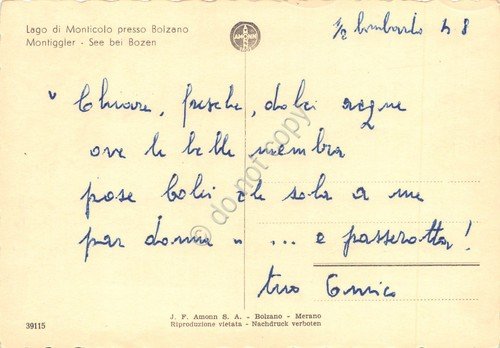 Lago di Monticolo presso Bolzano
Montiggler - See bei Bozen
AMONN
1/2 lombardo 48
" Chiare, fresche, dolci acque
ove le belle membra
pose colei che sola a me
par donna " ... e passerotta!
tuo Enrico
do not copy
39115
J. F. Amonn S. A. - Bolzano - Merano
Riproduzione vietata - Nachdruck verboten